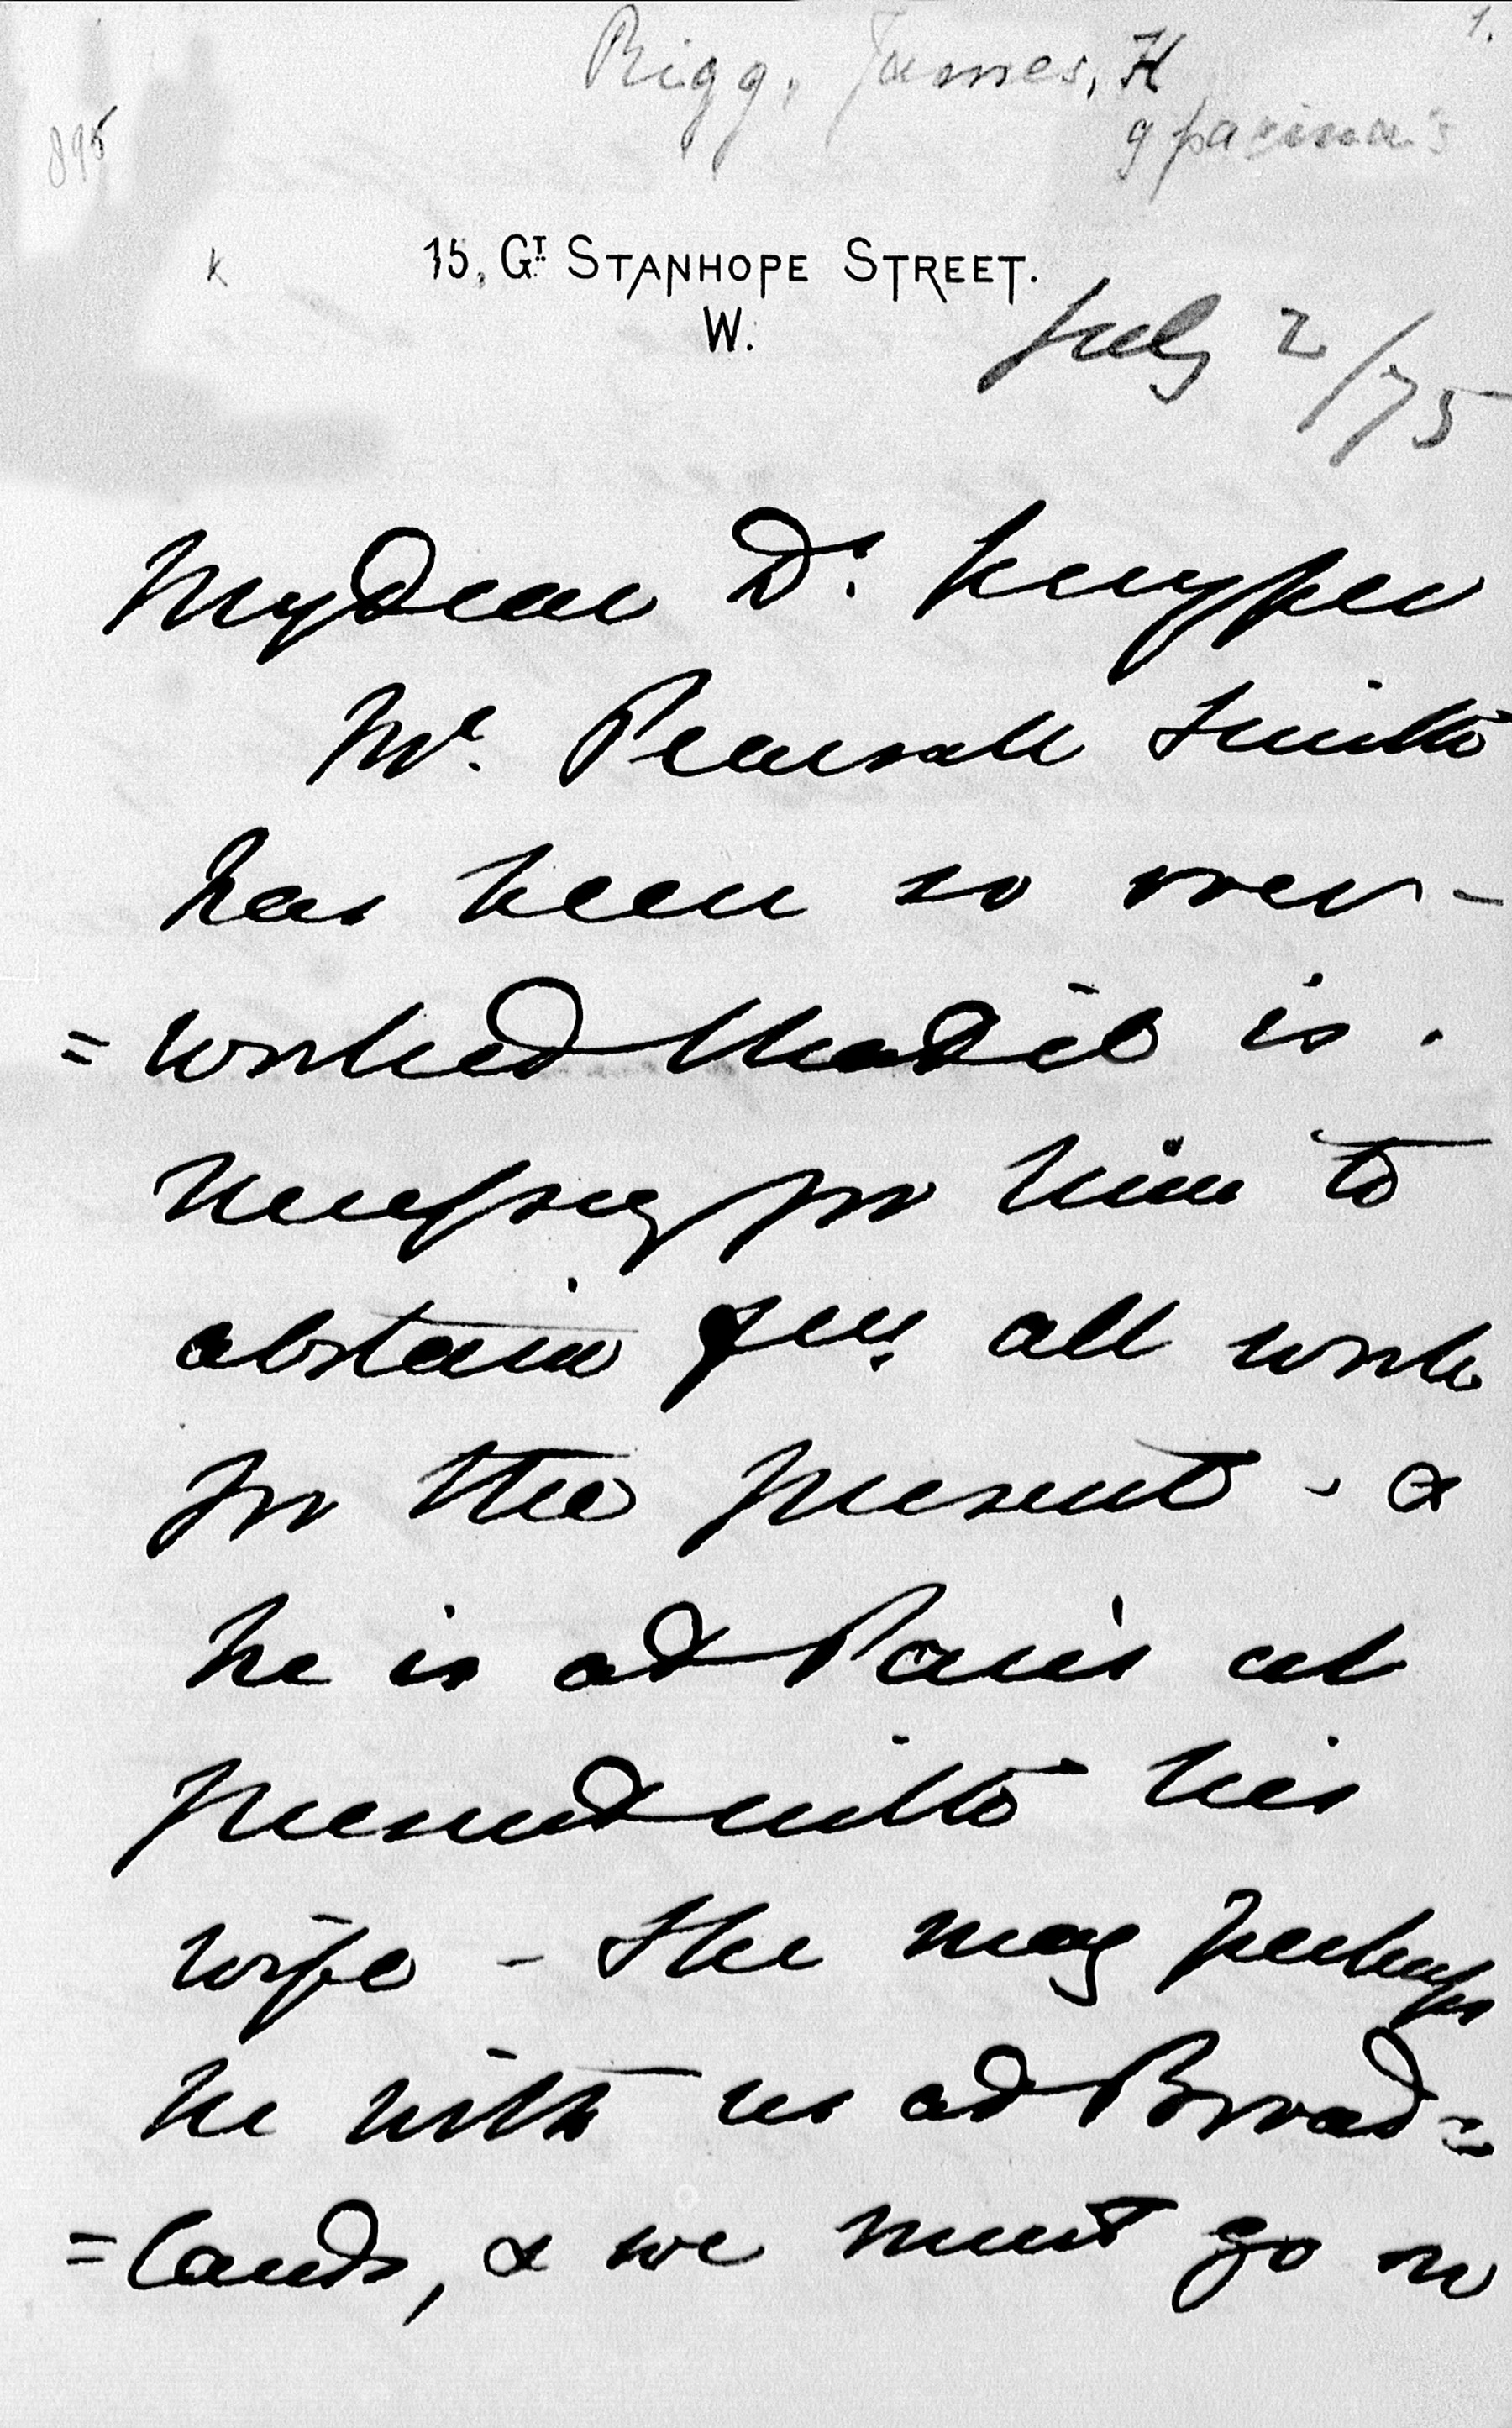 1.
Rigg, James, H
9 pagina's
895
K
15, GT. STANHOPE STREET.
W.
July 2/75
My Dear Dr. Kuyper
Mr. Pearsall Smith
has been so over-
=worked that it is
necessary for him to
abstain from all work
for the present - &
he is at Paris at
present with his
wife - She may perhaps
be with us at Broad=
=lands, & we must go on